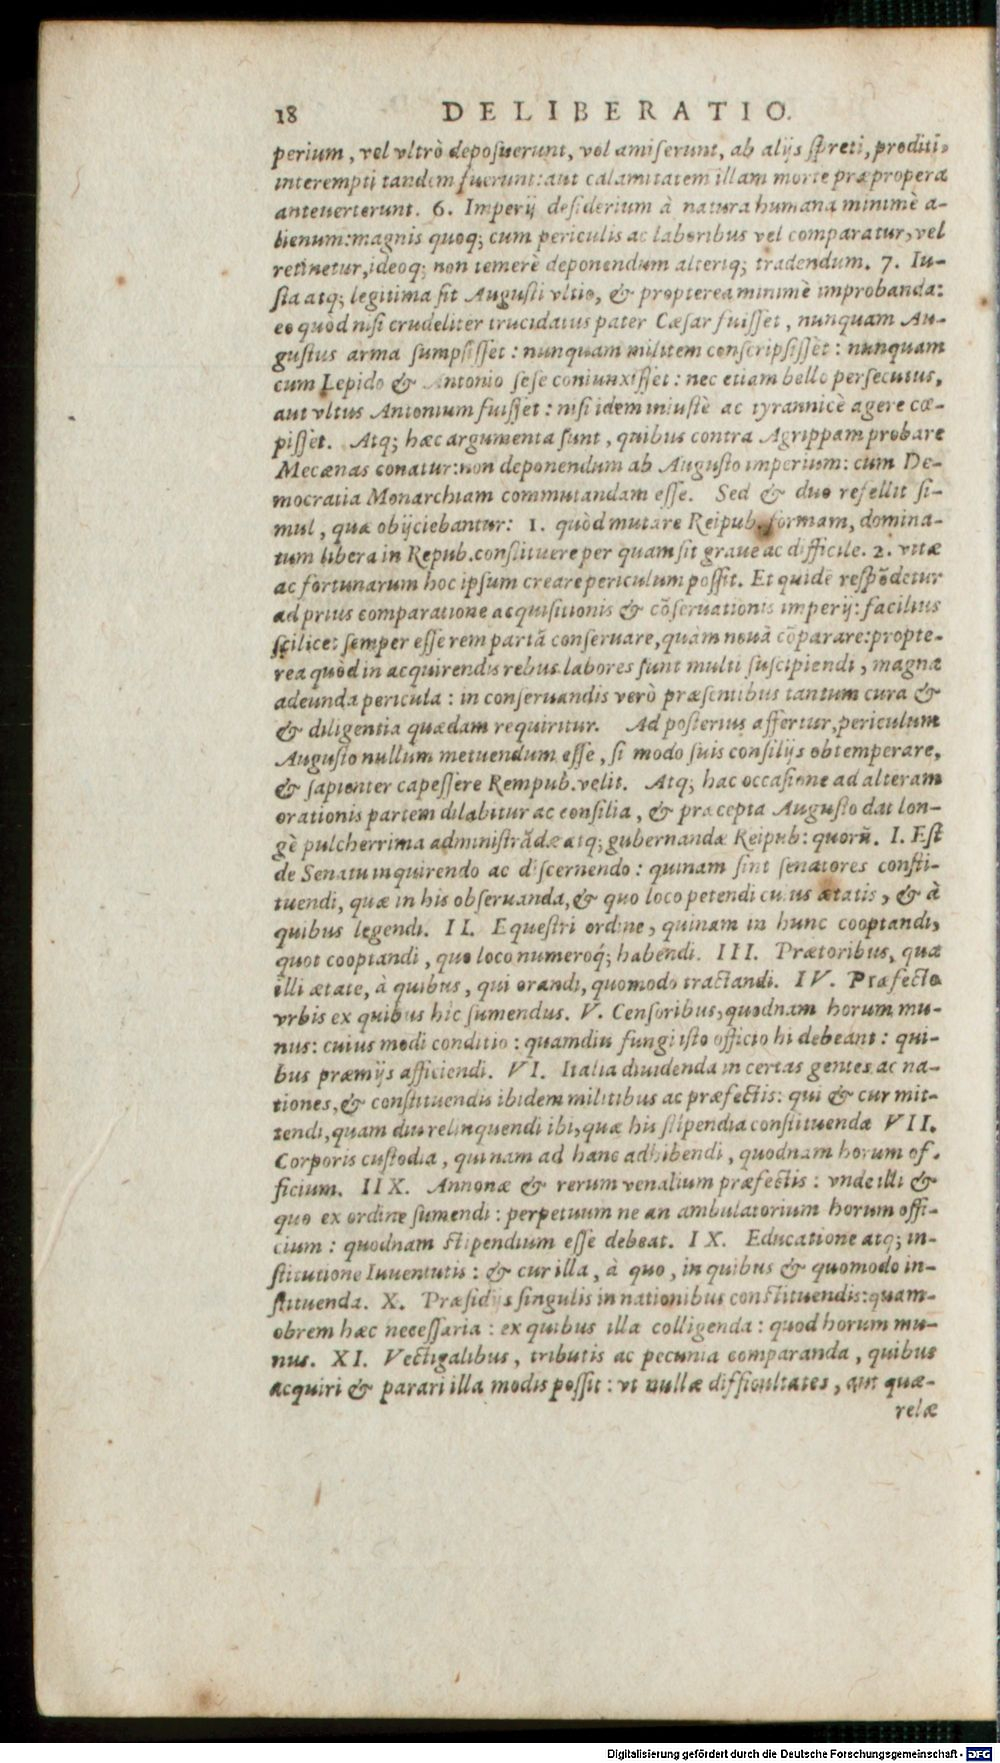 18 DELIBERATIO.
perium, vel vltrò deposuerunt, vel amiserunt, ab alijs spreti, proditi,
interempti tandem fuerunt: aut calamitatem illam morte præpropera
anteuerterunt. 6. Imperij desiderium à natura humana minimè a-
lienum: magnis quoq; cum periculis ac laboribus vel comparatur, vel
retinetur, ideoq; non temerè deponendum alteriq; tradendum. 7. Iu-
sta atq; legitima sit Augusti vltio, & propterea minimè improbanda:
eo quòd nisi crudeliter trucidatus pater Cæsar fuisset, nunquam Au-
gustus arma sumpsisset: nunquam militem conscripsisset: nunquam
cum Lepido & Antonio sese coniunxisset: nec etiam bello persecutus,
aut vltus Antonium fuisset: nisi idem iniustè ac tyrannicè agere cœ-
pisset. Atq; hæc argumenta sunt, quibus contra Agrippam probare
Mecœnas conatur: non deponendum ab Augusto imperium: cum De-
mocratia Monarchiam commutandam esse. Sed & duo refellit si-
mul, quæ obijciebantur: 1. quòd mutare Reipub. formam, domina-
tum libera in Repub. constituere per quam sit graue ac difficile. 2. vitæ
ac fortunarum hoc ipsum creare periculum possit. Et quidē respōdetur
ad prius comparatione acquisitionis & cōseruationis imperij: facilius
scilicet semper esse rem partā conseruare, quàm nouā cōparare: propte-
rea quòd in acquirendis rebus labores sunt multi suscipiendi, magna
adeunda pericula: in conseruandis verò præsentibus tantum cura &
& diligentia quædam requiritur. Ad posterius affertur, periculum
Augusto nullum metuendum esse, si modo suis consilijs obtemperare,
& sapienter capessere Rempub. velit. Atq; hac occasione ad alteram
orationis partem dilabitur ac consilia, & præcepta Augusto dat lon-
gè pulcherrima administrādæ atq; gubernandæ Reipub: quorū. I. Est
de Senatu inquirendo ac discernendo: quinam sint senatores consti-
tuendi, quæ in his obseruanda, & quo loco petendi cuius ætatis, & à
quibus legendi. II. Equestri ordine, quinam in hunc cooptandi,
quot cooptandi, quo loco numeroq́; habendi. III. Prætoribus, qua
illi ætate, à quibus, qui orandi, quomodo tractandi. IV. Præfecto
vrbis ex quibus hic sumendus. V. Censoribus, quodnam horum mu-
nus: cuius modi conditio: quamdiu fungi isto officio hi debeant: qui-
bus præmijs afficiendi. VI. Italia diuidenda in certas gentes ac na-
tiones, & constituendis ibidem militibus ac præfectis: qui & cur mit-
tendi, quam diu relinquendi ibi, quæ his stipendia constituenda VII.
Corporis custodia, quinam ad hanc adhibendi, quodnam horum of-
ficium. IIX. Annonæ & rerum venalium præfectis: vnde illi &
quo ex ordine sumendi: perpetuum ne an ambulatorium horum offi-
cium: quodnam stipendium esse debeat. IX. Educatione atq; in-
stitutione Iuuentutis: & cur illa, à quo, in quibus & quomodo in-
stituenda. X. Præsidijs singulis in nationibus constituendis: quam-
obrem hæc necessaria: ex quibus illa colligenda: quod horum mu-
nus. XI. Vectigalibus, tributis ac pecunia comparanda, quibus
acquiri & parari illa modis possit: vt nullæ difficultates, aut quæ-
relæ
Digitalisierung gefördert durch die Deutsche Forschungsgemeinschaft - DFG